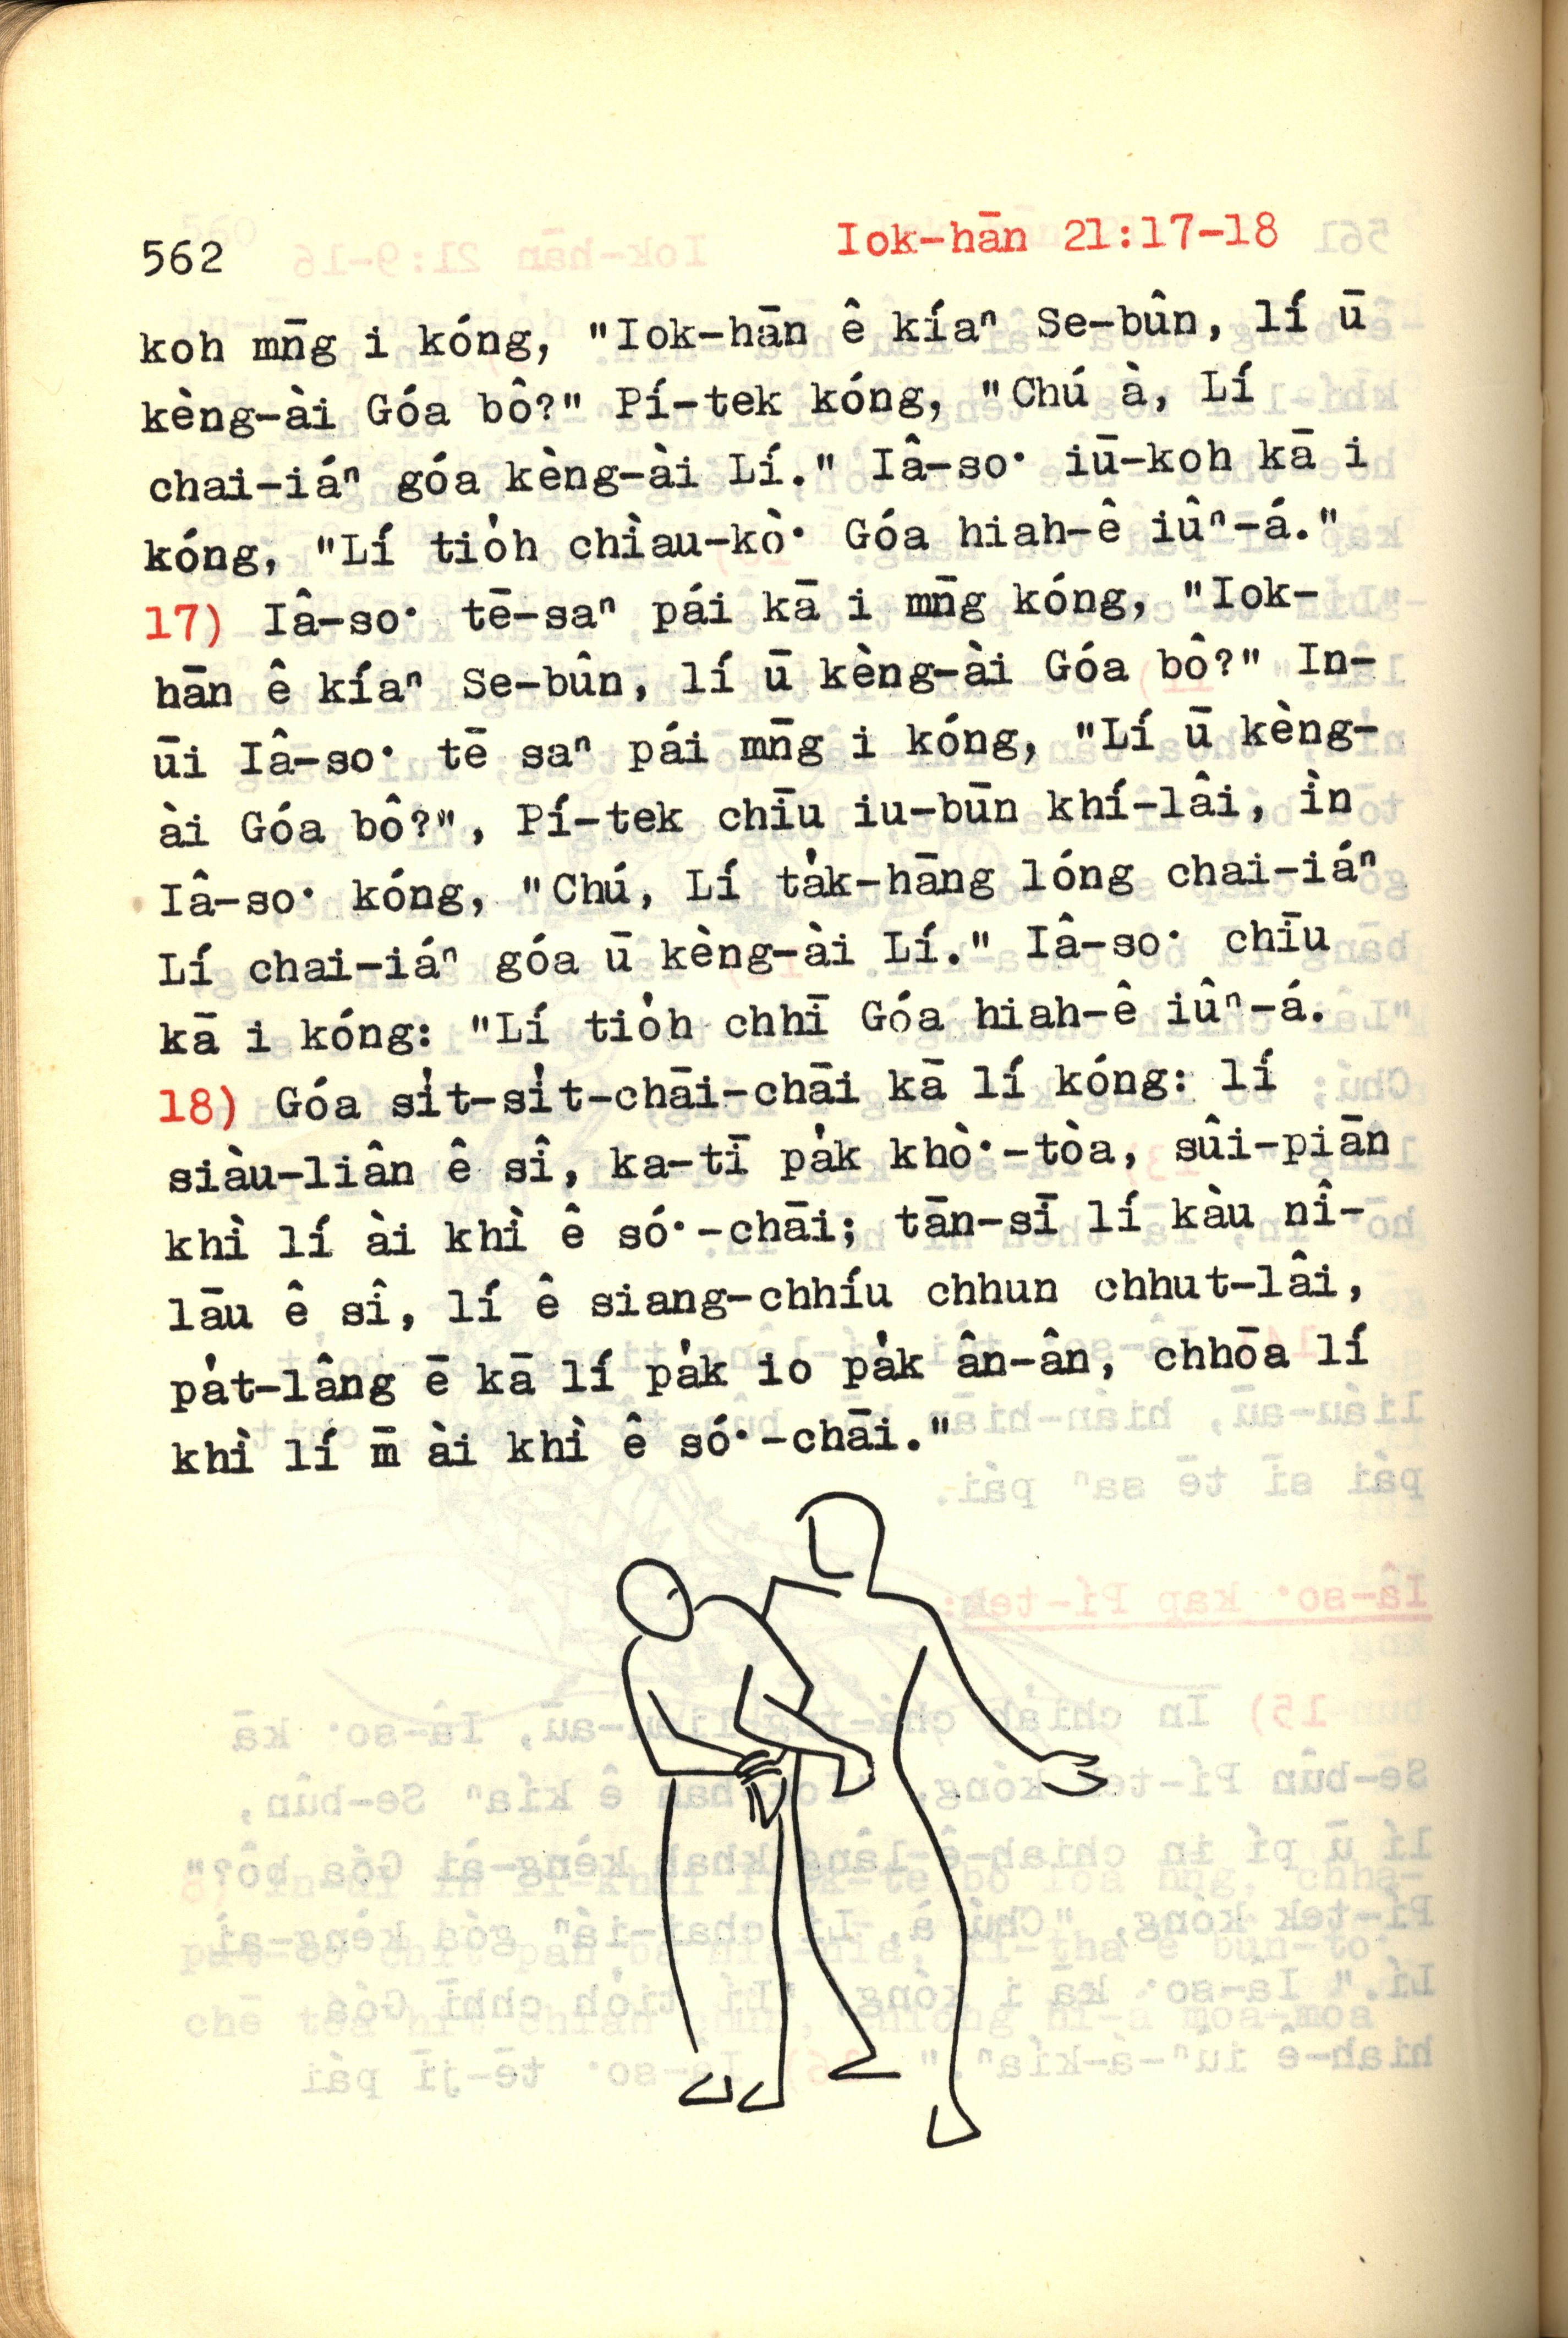 562 Iok-hān 21:17-18
koh mn̄g i kóng, "Iok-hān ê kíaⁿ Se-bûn, lí ū
kèng-ài Góa bô?" Pí-tek kóng, "Chú à, Lí
chai-iáⁿ góa kèng-ài Lí." Iâ-so͘ iū-koh kā i
kóng, "Lí tio̍h chìau-kò͘ Góa hiah-ê iûⁿ-á."
17) Iâ-so͘ tē-saⁿ pái kā i mn̄g kóng, "Iok-
hān ê kíaⁿ Se-bûn, lí ū kèng-ài Góa bô?" In-
ūi Iâ-so͘ tē saⁿ pái mn̄g i kóng, "Lí ū kèng-
ài Góa bô?", Pí-tek chīu iu-būn khí-lâi, ìn
Iâ-so͘ kóng, "Chú, Lí ta̍k-hāng lóng chai-iáⁿ
Lí chai-iáⁿ góa ū kèng-ài Lí." Iâ-so͘ chīu
kā i kóng: "Lí tio̍h chhī Góa hiah-ê iûⁿ-á.
18) Góa si̍t-si̍t-chāi-chāi kā lí kóng: lí
siàu-liân ê sî, ka-tī pa̍k khò͘-tòa, sûi-piān
khì lí ài khì ê só͘-chāi; tān-sī lí kàu nî-
lāu ê sî, lí ê siang-chhíu chhun chhut-lâi,
pa̍t-lâng ē kā lí pa̍k io pa̍k ân-ân, chhōa lí
khì lí m̄ ài khì ê só͘-chāi."